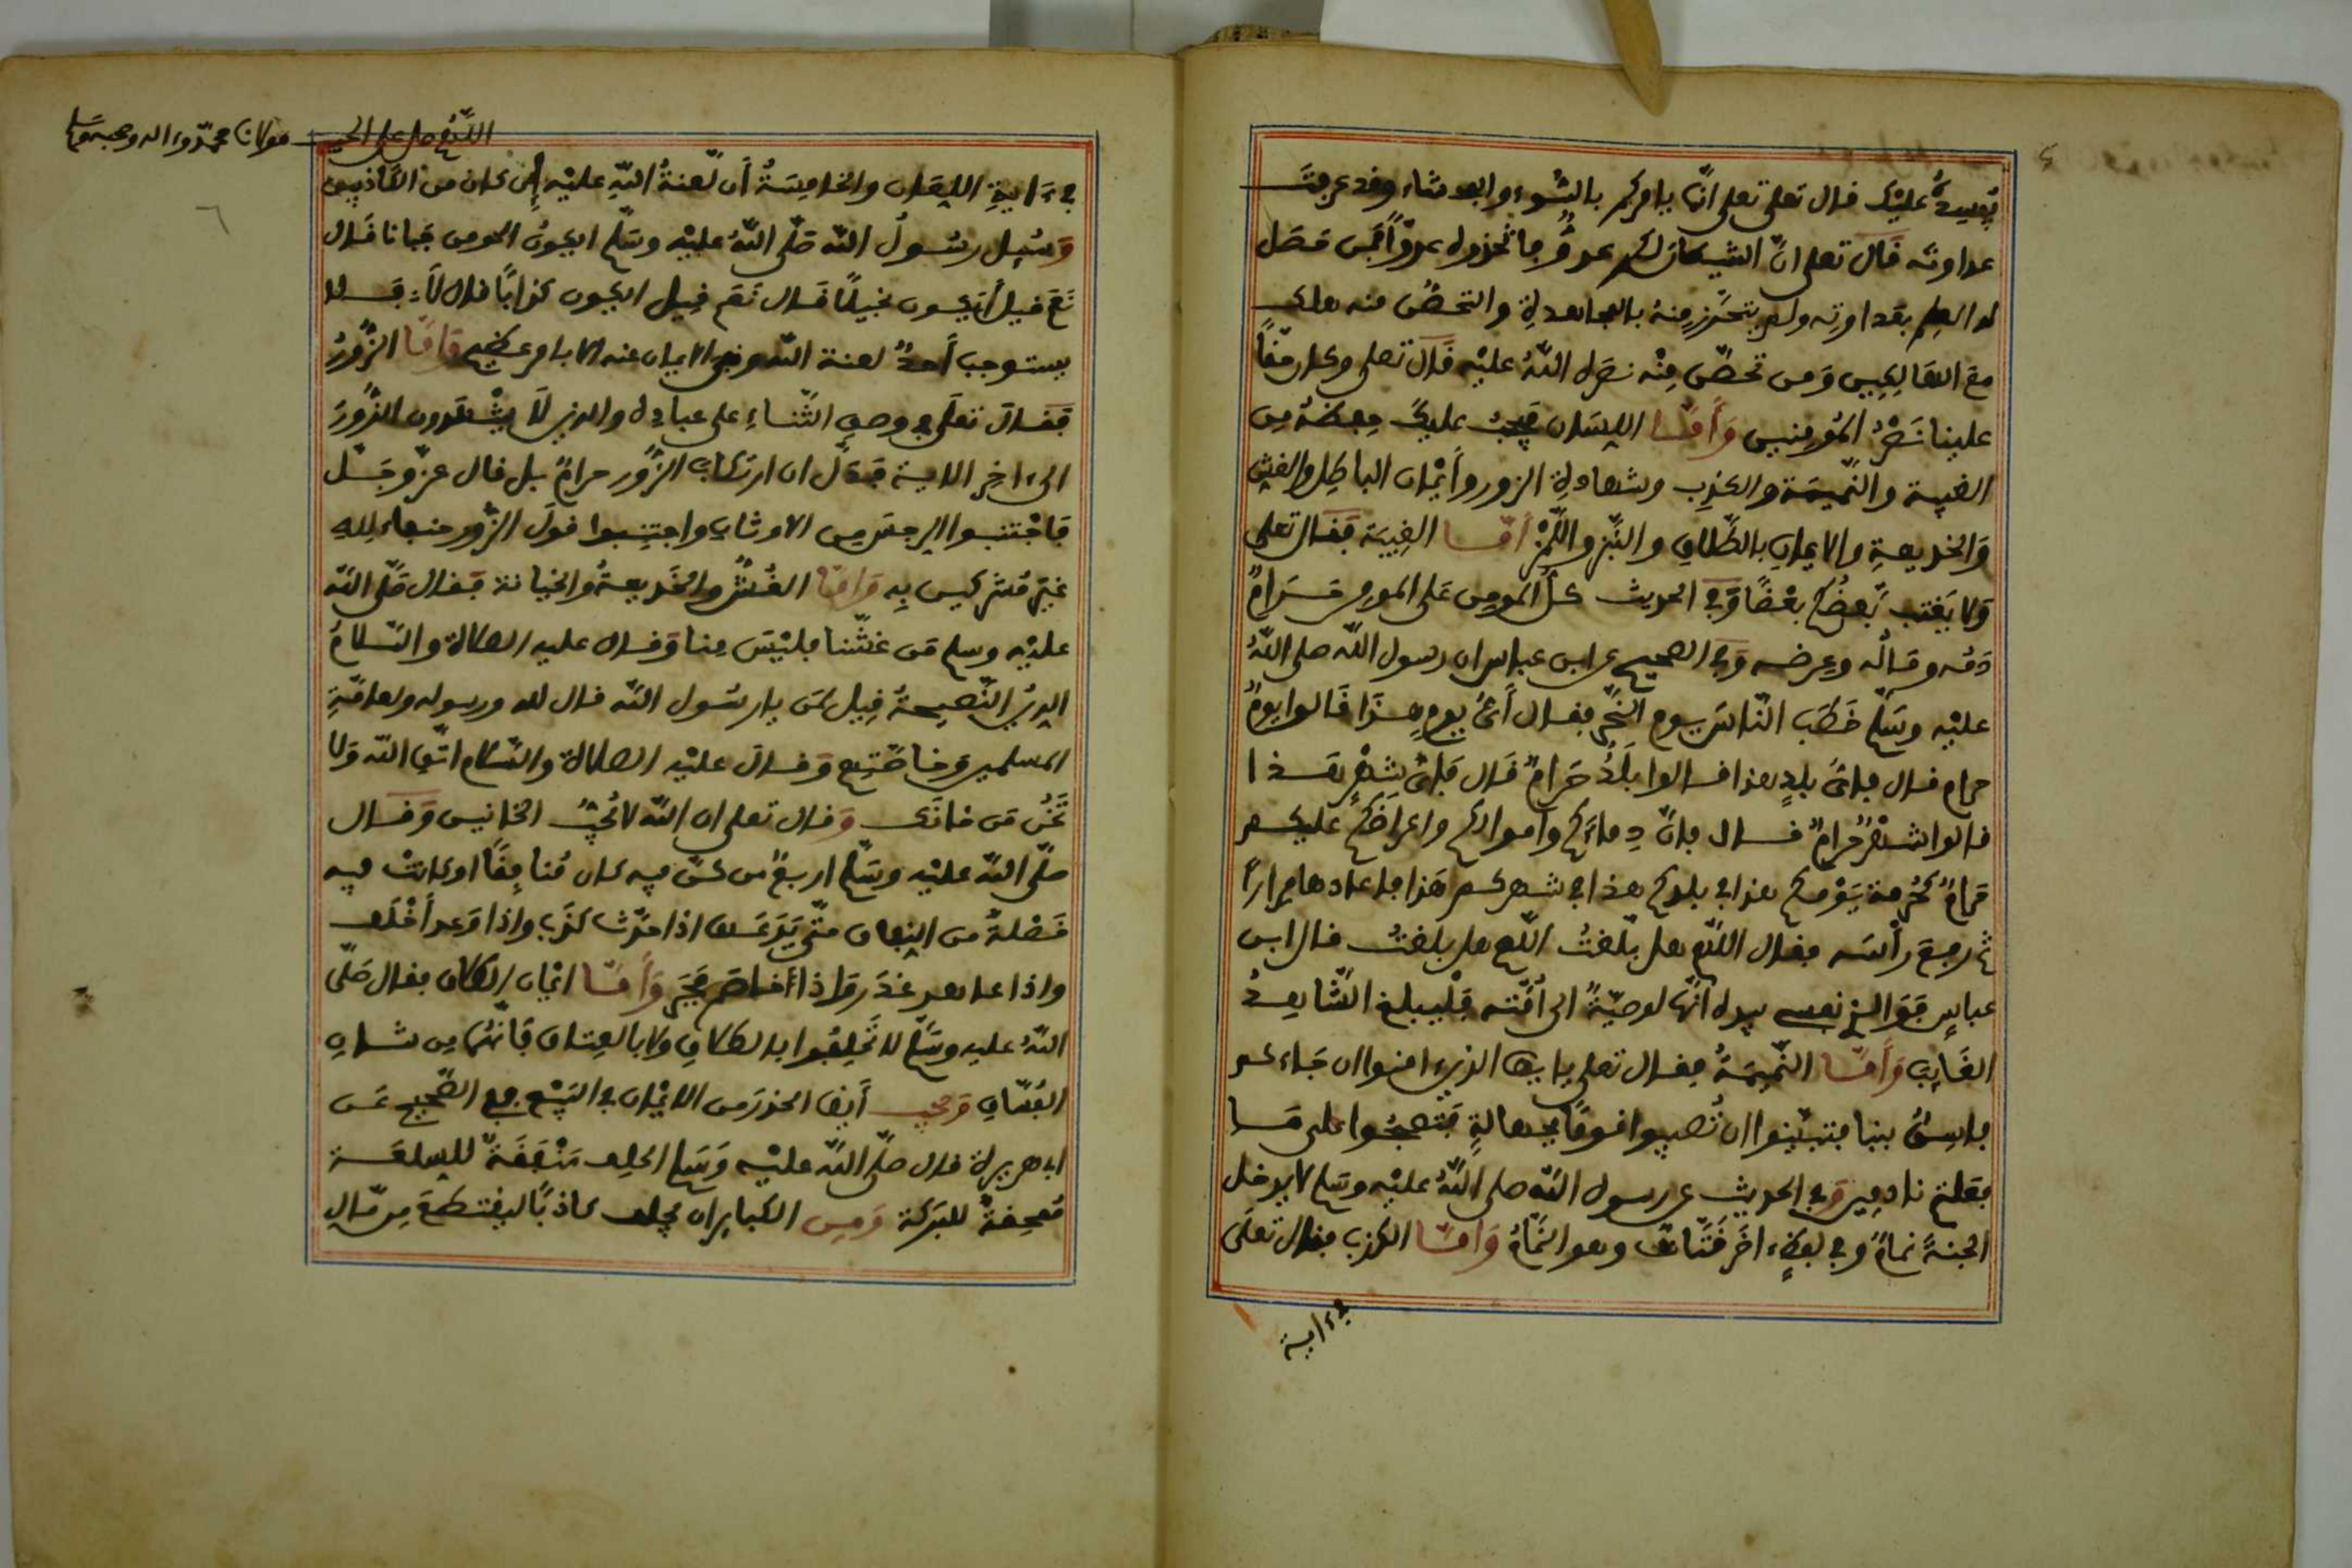 يفسده عليك قال تعلى تعلى انما يامركم بالسوء والفحشاء وقد عرفت
عداوته قال تعلى ان الشيطان لكم عدو فاتخذوه عدوا فمن حصل
له العلم بعداوته ولم يتحرز منه بالمجاهدة والتحصن منه هلك
مع الهالكين ومن تحصن منه نصره الله عليه قال تعلى وكان حقا
علينا نصر المومنين وأما اللسان فيجب عليك حفظه من
الغيبة والنميمة والكذب وشهادة الزور وأيمان الباطل والغش
والخديعة والايمان بالطلاق والنبز واللمز أما الغيبة فقال تعلى
ولا يغتب بعضكم بعضا وفي الحديث كل المومن على المومن حرام
دمه وماله وعرضه وفي الصحيح عن ابن عباس ان رسول الله صلى الله
عليه وسلم خطب الناس يوم النحر فقال أي يوم هذا قالوا يوم
حرام قال فاي بلد هذا قالوا بلد حرام قال فاي شهر هذا
قالوا شهر حرام قال فان دماءكم واموالكم واعراضكم عليكم
حرام كحرمة يومكم هذا في بلدكم هذا في شهركم هذا فاعادها مرارا
ثم رفع رأسه فقال اللهم هل بلغت اللهم هل بلغت قال ابن
عباس فوالذي نفسي بيده انها لوصية الى أمته فليبلغ الشاهد
الغايب وأما النميمة فقال تعلى يايها الذين ءامنوا ان جاءكم
فاسق بنبإ فتبينوا ان تصيبوا قوما بجهالة فتصبحوا على ما
فعلتم نادمين وفي الحديث عن رسول الله صلى الله عليه وسلم لا يدخل
الجنة نمام وفي لفظ ءاخر قتات وهو النمام وأما الكذب فقال تعلى
في ءاية
اللهم صل على
مولانا محمد وءاله وصحبه وسلم
في ءاية اللعان والخامسة أن لعنة الله عليه إن كان من الكاذبين
وسئل رسول الله صلى الله عليه وسلم ايكون المومن جبانا قال
نعم قيل أيكون بخيلا قال نعم قيل ايكون كذابا قال لا فلا
يستوجب أحد لعنة الله ونفي الايمان عنه الا بامر عظيم وأما الزور
فقال تعلى في وصف الثناء على عباده والذين لا يشهدون الزور
الى ءاخر الاية فدل ان ارتكاب الزور حرام بل قال عز وجل
فاجتنبوا الرجس من الاوثان واجتنبوا قول الزور حنفاء لله
غير مشركين به وأما الغش والخديعة والخيانة فقال صلى الله
عليه وسلم من غشنا فليس منا وقال عليه الصلاة والسلام
الدين النصيحة قيل لمن يارسول الله قال لله ورسوله ولعامة
المسلمين وخاصتهم وقال عليه الصلاة والسلام اتق الله ولا
تخن من خانك وقال تعلى ان الله لا يحب الخائنين وقال
صلى الله عليه وسلم اربع من كن فيه كان منافقا او كانت فيه
خصلة من النفاق حتى يدعهن اذا حدث كذب واذا وعد أخلف
واذا عاهد غدر واذا أخاصم فجر وأما ايمان الطلاق فقال صلى
الله عليه وسلم لا تحلفوا بالطلاق ولا بالعتاق فانهما من شان
الفساق ويجب أيضا الحذر من الايمان في البيع ففي الصحيح عن
ابي هريرة قال صلى الله عليه وسلم الحلف منفقة للسلعة
ممحقة للبركة ومن الكبائر ان يحلف كاذبا ليقتطع من مال